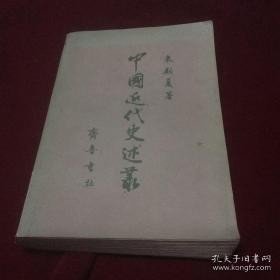 朱彭夏著
中國近代史述叢
齊魯書社
孔夫子旧书网